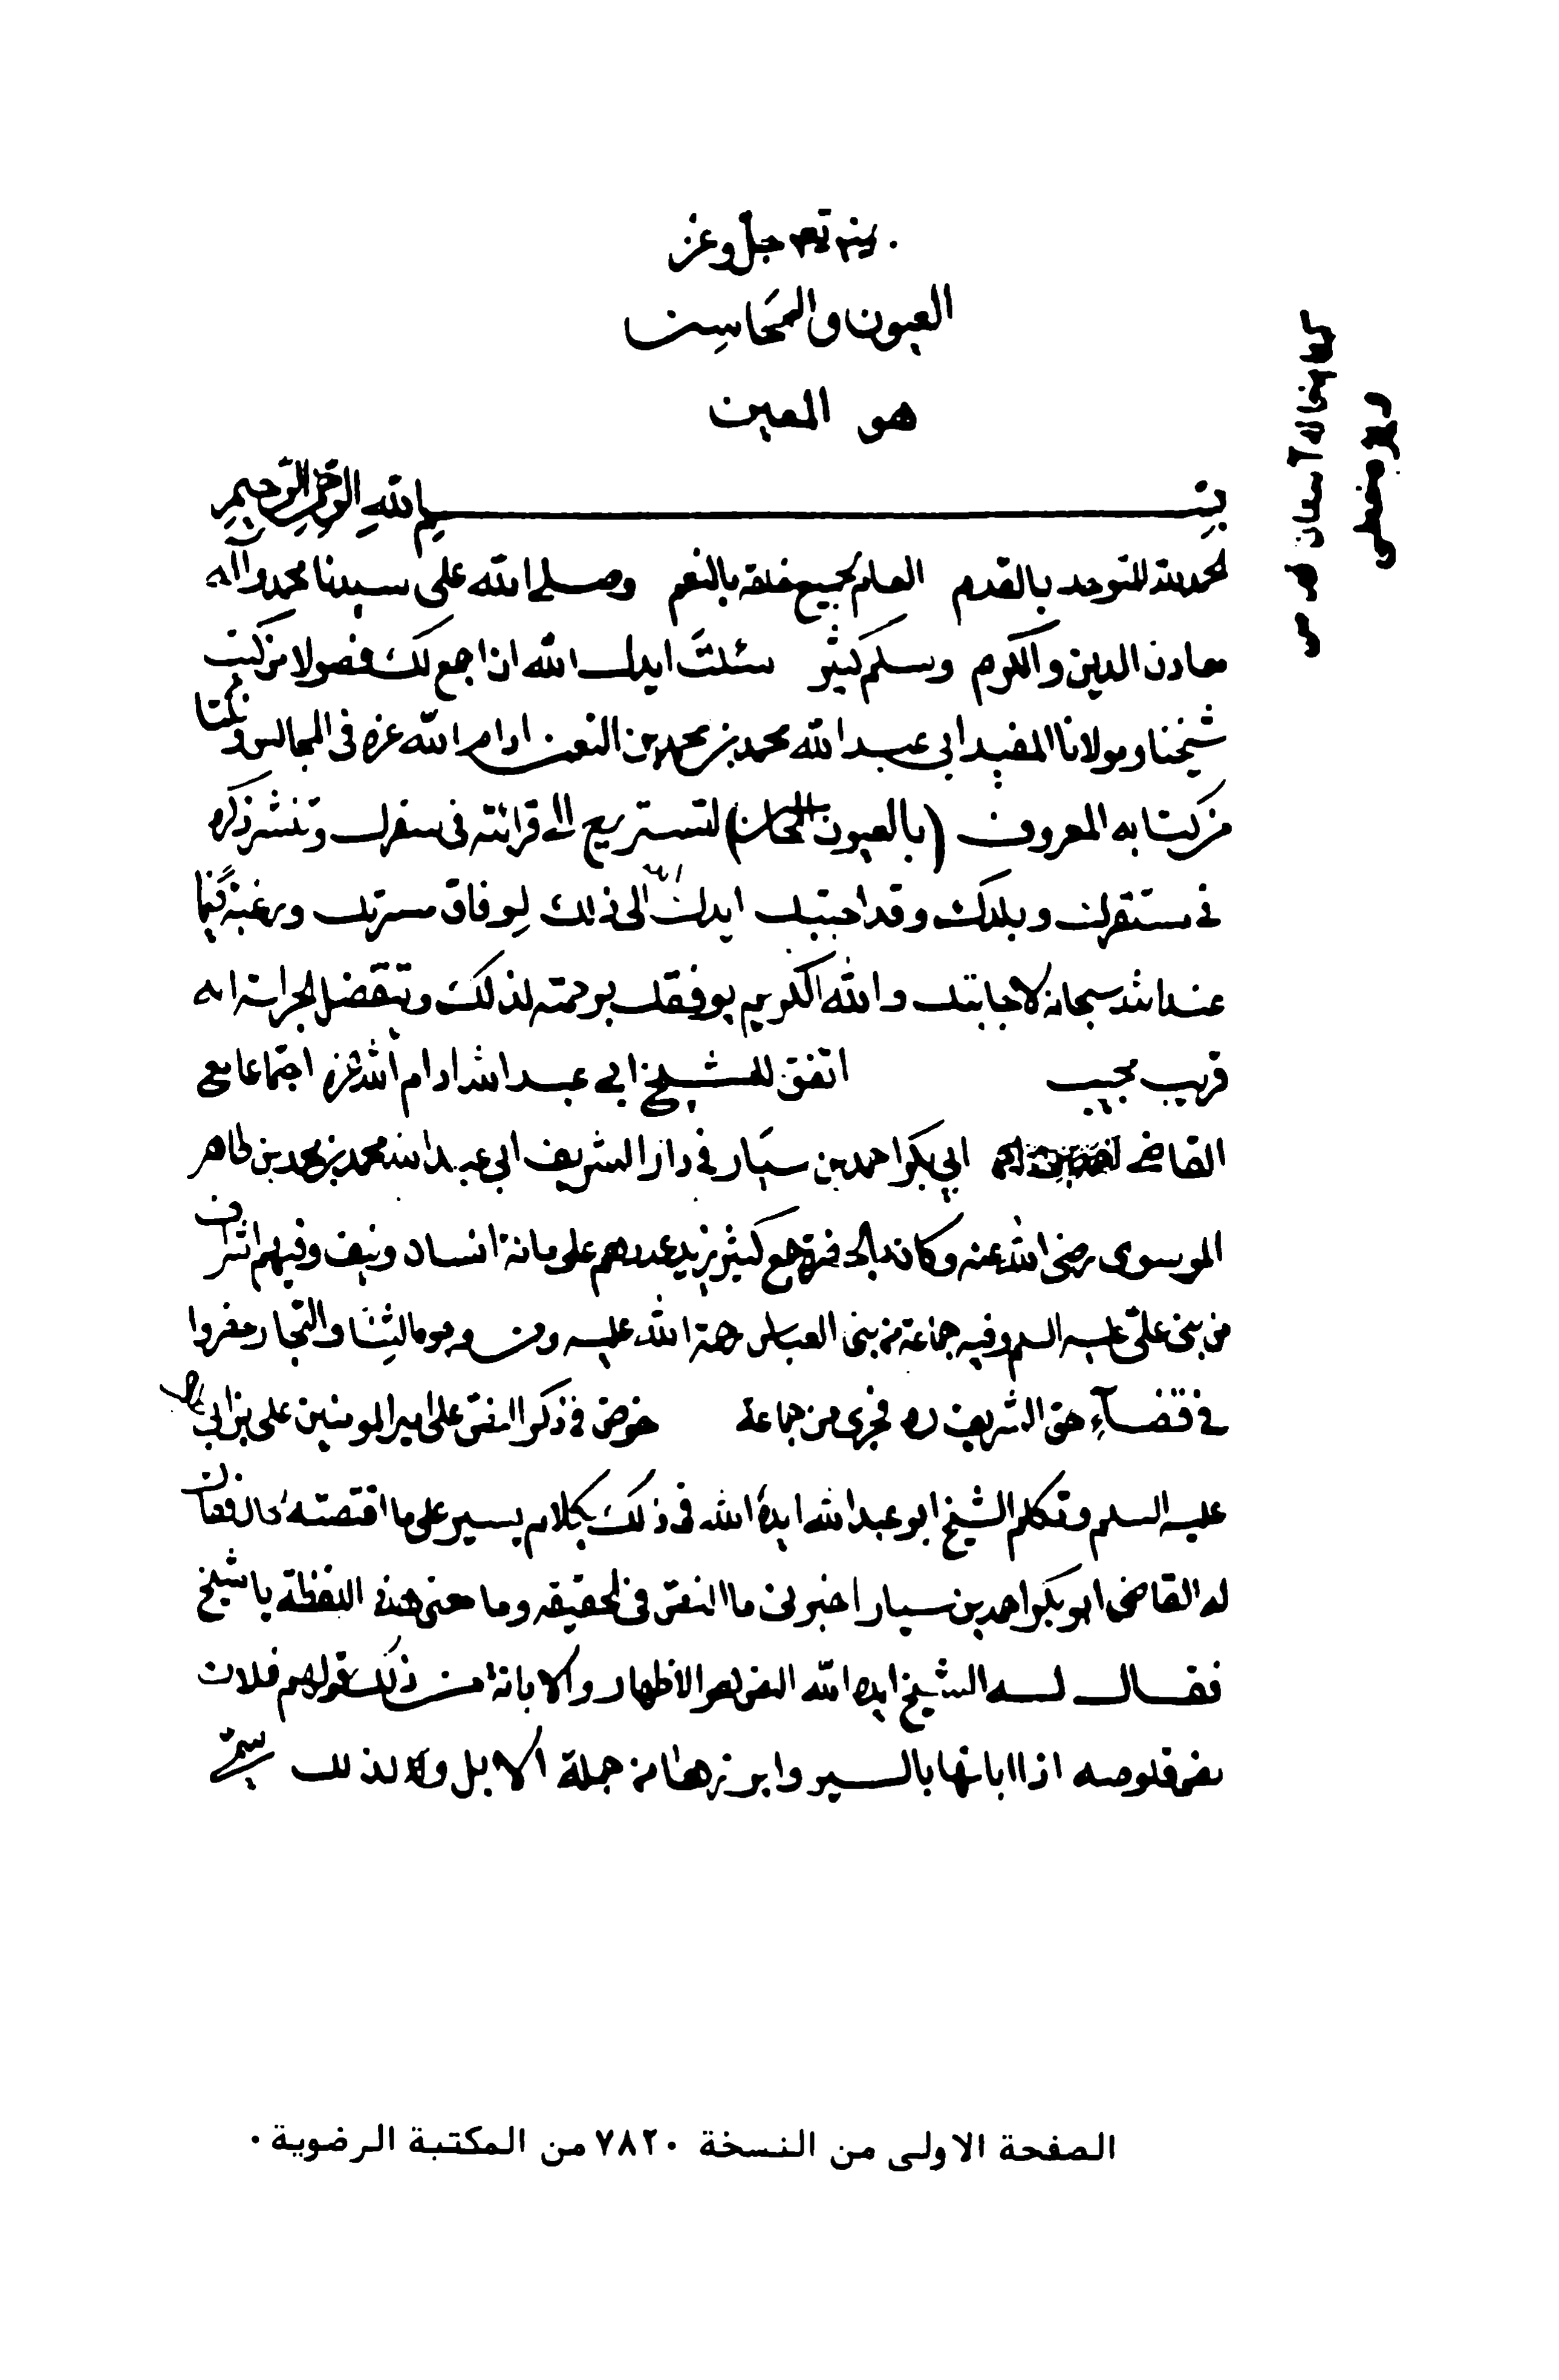 جل وعز
العيون والمحاسن
هو المعين
بسم الله الرحمن الرحيم
الحمد لله المتوحد بالقدم العام لجميع خلقه بالنعم وصلى الله على سيدنا محمد وآله
معادن الدين والكرم وسلم كثير سئلت ايدك الله ان اجمع لك فصولا من كتب
شيخنا ومولانا المفيد ابي عبد الله محمد بن محمد بن النعمن ادام الله عزه في المجالس ونكتا
من كتابه المعروف (بالعيون المحاسن) لتستريح الى قرائته في سفرك وتنشر ذكره
في مستقرك وبلدك وقد اجبتك ايدك الله الى ذلك لوفاق مسرتك ورغبة فيما
عند الله سبحانه لاجابتك والله الكريم يوفقك برحمته لذلك ويتفضل انه
قريب مجيب اتفق للشيخ ابي عبد الله ادام الله عزه اجتماعا مع
القاضي ابي بكر احمد بن سيار في دار الشريف ابي عبد الله محمد بن محمد بن طاهر
الموسوي رضي الله عنه وكان بالحضرة جمع كثير يزيد عددهم على مائة انسان ونيف وفيهم اشراف
من بني علي عليه السلم وفيه جماعة من بني العباس رحمة الله عليه ومن وجوه الثنا والتجار حضروا
في قضآء حق الشريف ره فجرى من جماعة خوض في ذكر النص على امير المومنين علي بن ابي طالب
عليه السلم وتكلم الشيخ ابو عبد الله ايده الله في ذلك بكلام يسير على ما اقتضته الحال فقال
له القاضي ابو بكر احمد بن سيار اخبرني ما النص في الحقيقه وما معنى هذه اللفظة يا شيخ
فقال له الشيخ ايده الله النص هو الاظهار والابانة من ذلك قولهم فلان
نص قلوصه اذا ابانها بالسير وابرزها من جملة الابل ولذلك سمى
الصفحة الاولى من النسخة ٧٨٢٠ من المكتبة الرضوية .